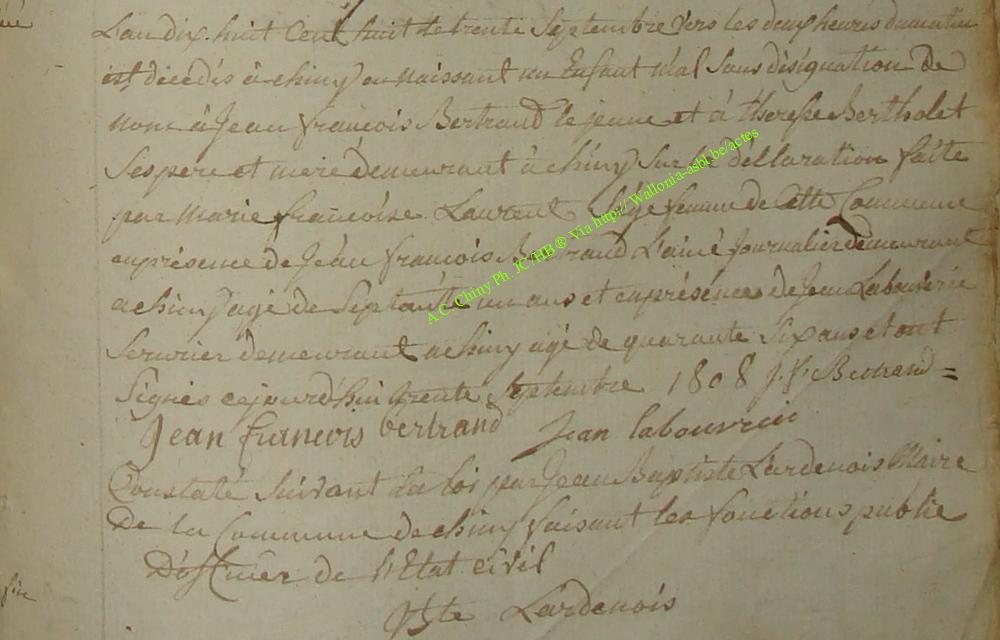 L'an dix huit Cent huit le trente Septembre vers les deux heures du matin
est décédés à chiny en Naissant un Enfant mal Sans désignation de
nom à Jean françois Bertrand le jeune et à therese Bertholet
Ses pere et mere demeurant à chiny Sur la déllaration faite
par Marie françoise Laurent Sage femme de Cette Commune
en présence de Jean françois Bertrand L'ainé Journalier demeurant
a chiny agé de Septante un ans et en présence de Jean Labouverie
Serurier demeurant a chiny agé de quarante Six ans et ont
Signés cejourd'hui trente Septembre 1808 J. f. Bertrand =
Jean furneois bertrand Jean labouvrie
Constaté Suivant La loi par Jean Baptiste Lardenois Maire
De la Commune de chiny faisant les fonctions public
D'officier de l'Etat civil
JBte Lardenois
A.C. Chiny Ph. JC/HB ® Via http:// Wallonia-asbl.be/actes